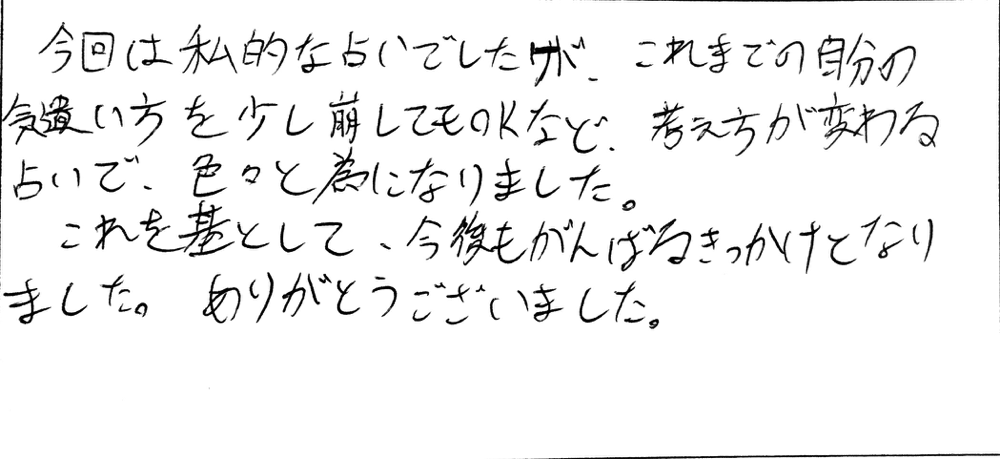 今回は私的な占いでしたが、これまでの自分の
気遣い方を少し崩してもOKなど、考え方が変わる
占いで、色々と為になりました。
これを基として、今後もがんばるきっかけとなり
ました。ありがとうございました。